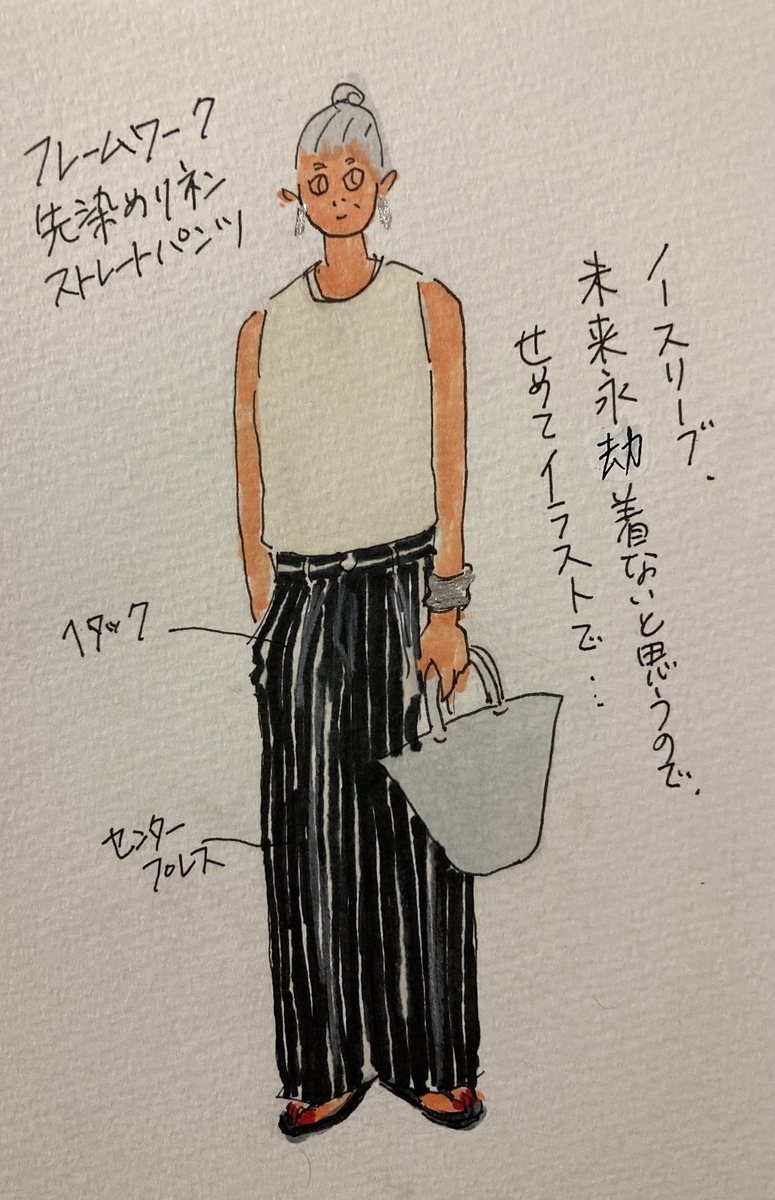 フレームワーク
先染めリネン
ストレートパンツ
ノースリーブ.
未来永劫着ないと思うので.
せめてイラストで…
1タック
センター
プレス